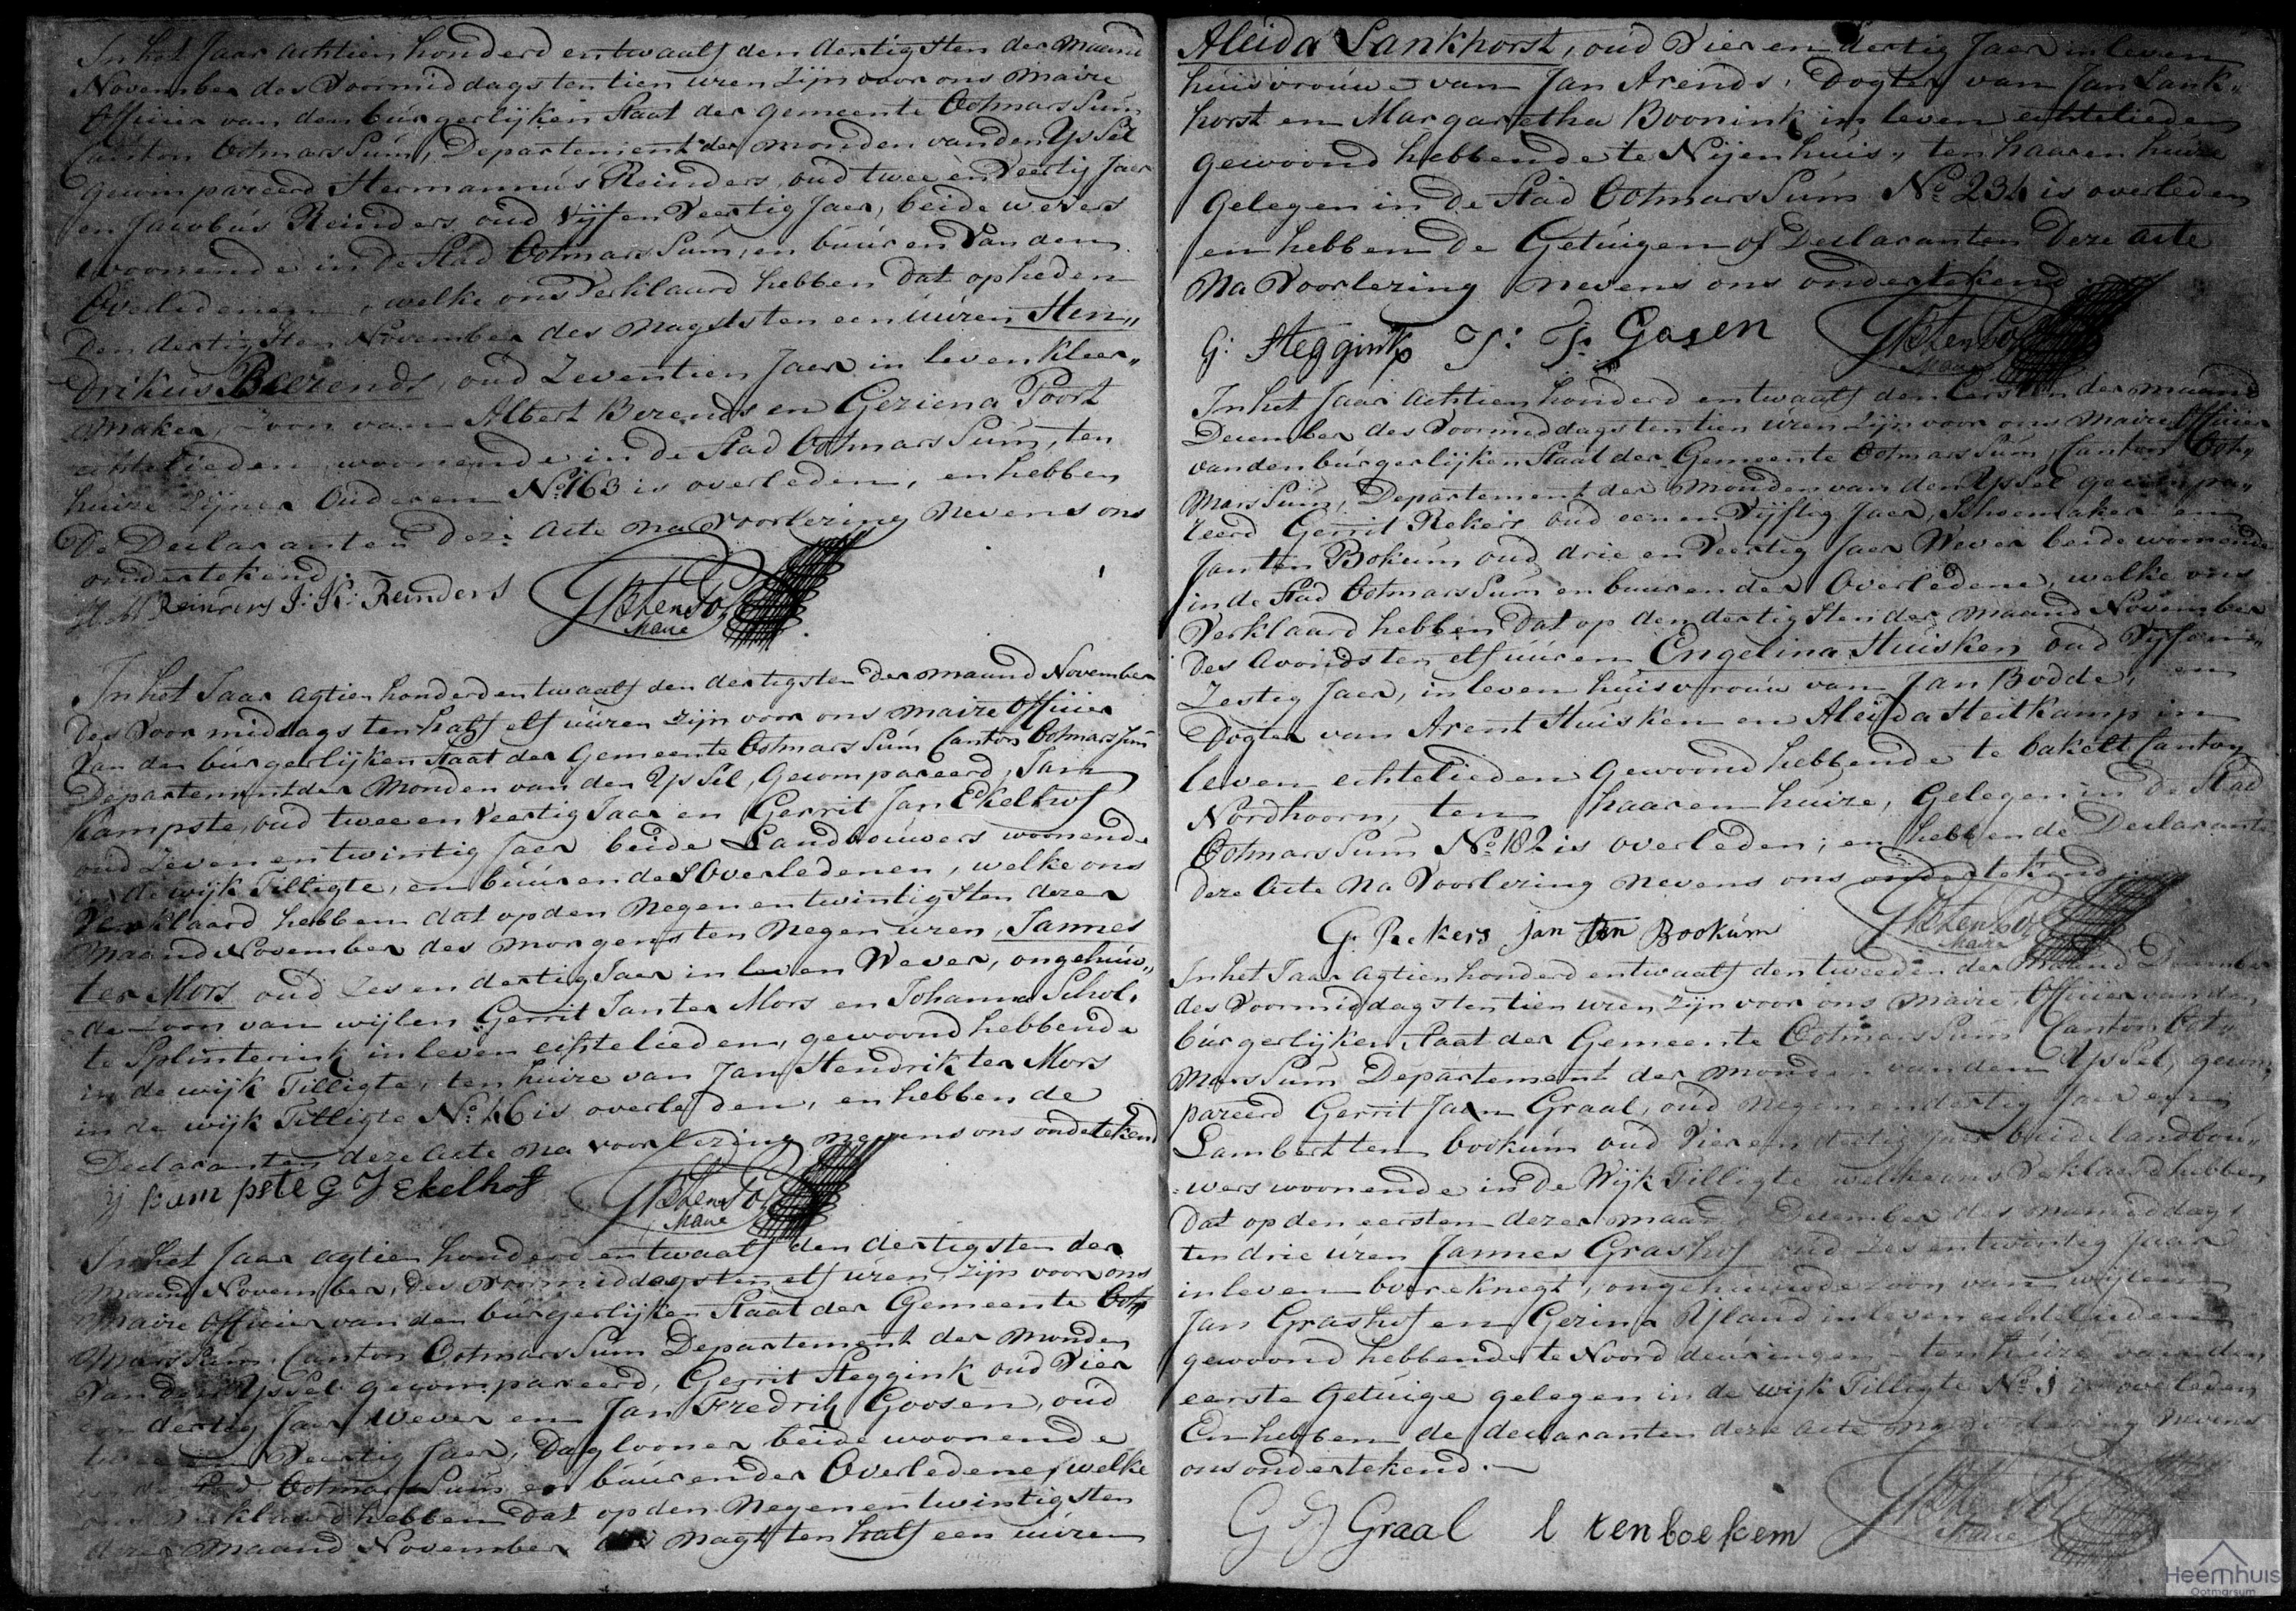 In het Jaar achtien honderd en twaalf den dertigsten der maand
November des Voormiddags ten tien uren zijn voor ons Maire
Officier van den burgerlijken Staat der gemeente Ootmarssum
Canton Ootmarssum, Departement der monden van den Yssel
gecompareerd Hermannus Reinders, oud twee en Veertig Jaer
en Jacobus Reinders oud Vijf en Veertig Jaer, beide wevers
woonende in de Stad Ootmarssum, en buuren van den
Overledenen, welke ons Verklaard hebben dat op heden
den dertigsten November des nagts ten een uuren Hen„
drikus Beerends, oud Zeventien Jaer in leven kleer„
maker, Zoon van Albert Berends en Geziena Poort
echtelieden woonende in de Stad Ootmarssum, ten
huize zijner Ouderen No 163 is overleden, en hebben
De Declaranten deze acte na voorlezing nevens ons
ondertekend.
H M Reinders J: K: Reinders
Maire
In het Jaar agtien honderd en twaalf den dertigsten der maand November
des Voor middags ten half elf uuren zijn voor ons maire Officier
Van den burgerlijken Staat der Gemeente Ootmarssum Canton Ootmarssum
Departement der Monden van den Yssel, Gecompareerd, Jan
Kampste, oud twee en Veertig Jaar en Gerrit Jan Ekelhof
oud Zeven en twintig Jaer beide Landbouwers woonende
in de wijk Tilligte, en buuren des Overledenen, welke ons
Verklaard hebben dat op den Negen en twintigsten dezer
maand November des morgens ten Negen uren, Jannes
ter Mors oud Zes en dertig Jaer in leven Wever, ongehuw„
de Zoon van wijlen Gerrit Jan ter Mors en Johanna Schol„
te Splinterink in leven echtelieden, gewoond hebbende
in de wijk Tilligte, ten huize van Jan Hendrik ter Mors
in de wijk Tilligte No 16 is overleden, en hebben de
Declaranten deze Acte na voorlezing nevens ons ondertekend
kampste G J Ekelhof
Maire
In het Jaar agtien honderd en twaalf den dertigsten der
maand November, des voormiddags ten elf uren, zijn voor ons
Maire Officier van den burgerlijken Staat der Gemeente Oot„
marssum, Canton Ootmarssum Departement der monden
Van den Yssel gecompareerd, Gerrit Steggink oud Vier
en dertig Jaar Wever en Jan Fredrik Goosen, oud
Veertig Jaer, Daglooner beide woonende
in de Stad Ootmarssum en buuren der Overledene, welke
ons Verklaard hebben dat op den Negen en twintigsten
dezer maand November des nagts ten half een uuren
Aleida Lankhorst, oud Vier en dertig Jaer in leven
huisvrouwe van Jan Arends, Dogter van Jan Lank„
horst en Margaretha Boonink in leven echtelieden
gewoond hebbende te Nijenhuis, ten haaren huize
gelegen in de Stad Ootmarssum No 234 is overleden
en hebben de Getuigen of Declaranten Deze acte
Na Voorlezing nevens ons ondertekend
G: Steggink J: F: Gosen
Maire
In het Jaar Achtien honderd en twaalf den Eersten der maand
December des Voormiddags ten tien uren zijn voor ons Maire Officier
van den burgerlijken Staat der Gemeente Ootmarssum, Canton Oot„
marssum, Departement der Monden van den Yssel gecompa„
reerd Gerrit Rekers oud een en Vijftig Jaer, Schoemaker en
Jan ten Bokum oud drie en Veertig Jaer Wever beide woonende
in de Stad Ootmarssum en buuren der Overledene, welke ons
Verklaard hebben dat op den dertigsten der maand November
des Avonds ten elf uuren Engelina Huisken oud Vijf en„
Zestig Jaer, in leven huisvrouw van Jan Bodde, en
Dogter van Arent Huisken en Aleida Heitkamp in
leven echtelieden gewoond hebbende te bakelt Canton
Nordhoorn, ten haaren huize, gelegen in de Stad
Ootmarssum No 182 is overleden; en hebben de Declaranten
deze Acte Na Voorlezing nevens ons ondertekend
G. Rekers Jan ten Bookum
Maire
In het Jaar Agtien honderd en twaalf den tweeden der Maand December
des Voormiddags ten tien uren zijn voor ons Maire Officier van den
burgerlijken Staat der Gemeente Ootmarssum Canton Oot„
marssum Departement der monden van den Yssel, gecom„
pareerd Gerrit Jan Graal, oud Negen en dertig Jaer en
Lambert ten bookum oud Vier en dertig Jaer beide landbou„
wers woonende in de Wijk Tilligte welke ons Verklaard hebben
dat op den eersten dezer maand December des namiddags
ten drie uren Jannes Grashof oud Zes en twintig Jaar
in leven boereknegt, ongehuwde zoon van wijlen
Jan Grashof en Gezina Yland in leven echtelieden
gewoond hebbende te Noord deuringen ten huize van den
eerste Getuige gelegen in de wijk Tilligte No is overleden
En hebben de declaranten deze acte na voorlezing nevens
ons ondertekend.
G J Graal l ten boekem
Maire
Heemhuis
Ootmarsum